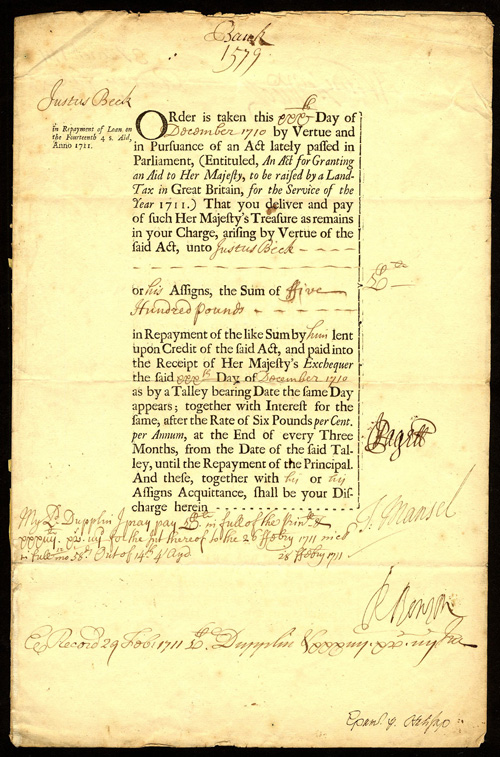 Bank
1579
Justus Beck
in Repayment of Loan on
the Fourteenth 4 s. Aid,
Anno 1711.
ORder is taken this xxxth Day of
December 1710 by Vertue and
in Pursuance of an Act lately passed in
Parliament, (Entituled, An Act for Granting
an Aid to Her Majesty, to be raised by a Land-
Tax in Great Britain, for the Service of the
Year 1711.) That you deliver and pay
of such Her Majesty's Treasure as remains
in your Charge, arising by Vertue of the
said Act, unto Justus Beck
or his Assigns, the Sum of ffive
Hundred pounds
in Repayment of the like Sum by him lent
upon Credit of the said Act, and paid into
the Receipt of Her Majesty's Exchequer
the said xxxth Day of December 1710
as by a Talley bearing Date the same Day
appears; together with Interest for the
same, after the Rate of Six Pounds per Cent.
per Annum, at the End of every Three
Months, from the Date of the said Tal-
ley, until the Repayment of the Principal.
And these, together with his or his
Assigns Acquittance, shall be your Dis-
charge herein
Pagett
J. Mansel
R Benson
My Ld. Dupplin I pray pay in full of the &
for the Int thereof to the 26 ffebry 1711
in full 58. Out of 14th 4s Ayd 28 ffebry 1711
Record 29 Feb 1711 Ld Dupplin